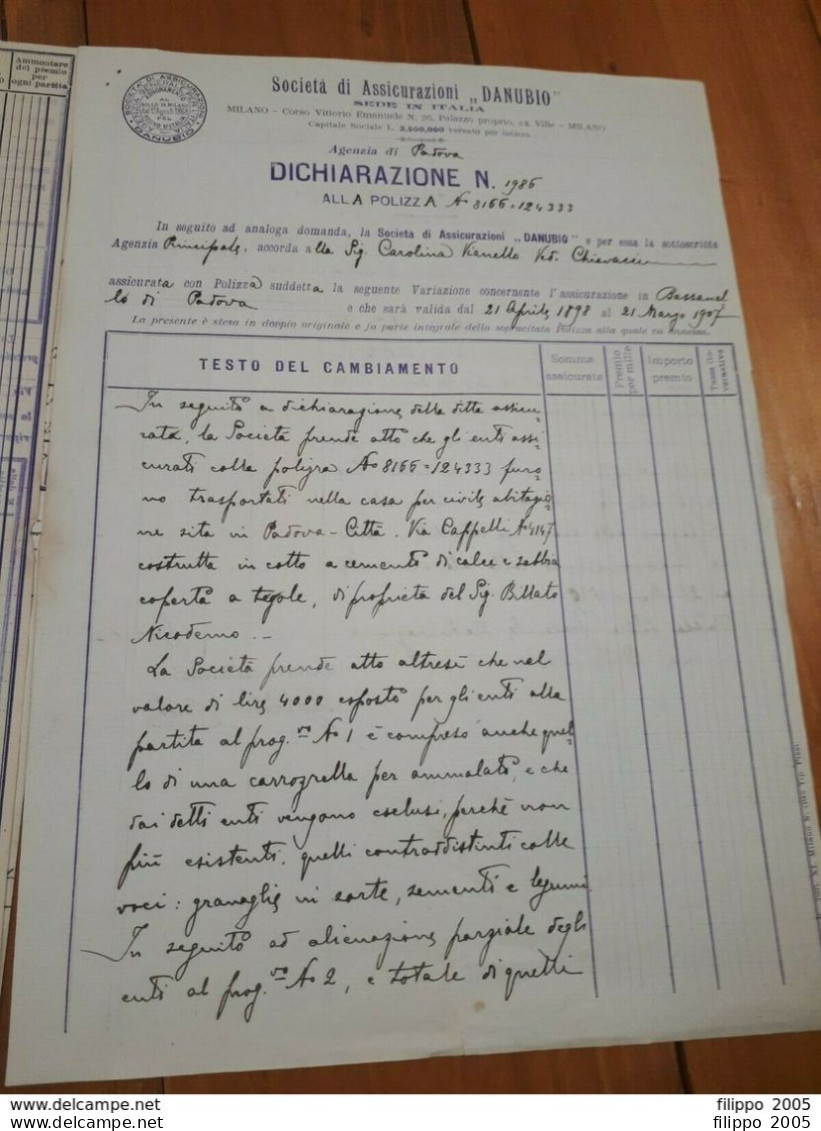 Ammontare
del premio
per
ogni partita
Società di Assicurazioni „DANUBIO"
SEDE IN ITALIA
MILANO - Corso Vittorio Emanuele N. 26, Palazzo proprio, ex Ville - MILANO
Capitale Sociale L. 2,500,000 versato per intero
Agenzia di Padova
DICHIARAZIONE N. 1986
ALLA POLIZZA No 8166=124333
In seguito ad analoga domanda, la Società di Assicurazioni „DANUBIO" e per essa la sottoscritta
Agenzia Principale, accorda alla Sig. Carolina Vianello Ved.
assicurata con Polizza suddetta la seguente Variazione concernente l'assicurazione in Bassanel
lo di Padova e che sarà valida dal 21 Aprile 1898 al 21 Marzo 1907
La presente è stesa in doppio originale e fa parte integrale della sopracitata Polizza alla quale va annessa.
TESTO DEL CAMBIAMENTO
Somma assicurata
Premio per mille
Importo premio
Tassa Governativa
In seguito a dichiarazione della ditta assicu=
rata, la Società prende atto che gli enti assi
curati colla polizza No 8166=124333 furo=
no trasportati nella casa per civile abitazio
ne sita in Padova-Città. Via Cappelli No 4147
costrutta in cotto a cemento di calce e sabbia
coperta a tegole, di proprietà del Sig. Billato
Nicodemo.-
La Società prende atto altresì che nel
valore di lire 4000 esposto per gli enti alla
partita al prog.vo No 1 è compreso anche quel=
lo di una carrozzella per ammalato, e che
dai detti enti vengono esclusi, perchè non
più esistenti, quelli contraddistinti colle
voci: granaglie in sorte, sementi e legumi
In seguito ad alienazione parziale degli
enti al prog.vo No 2, e totale di quelli
filippo 2005
filippo 2005